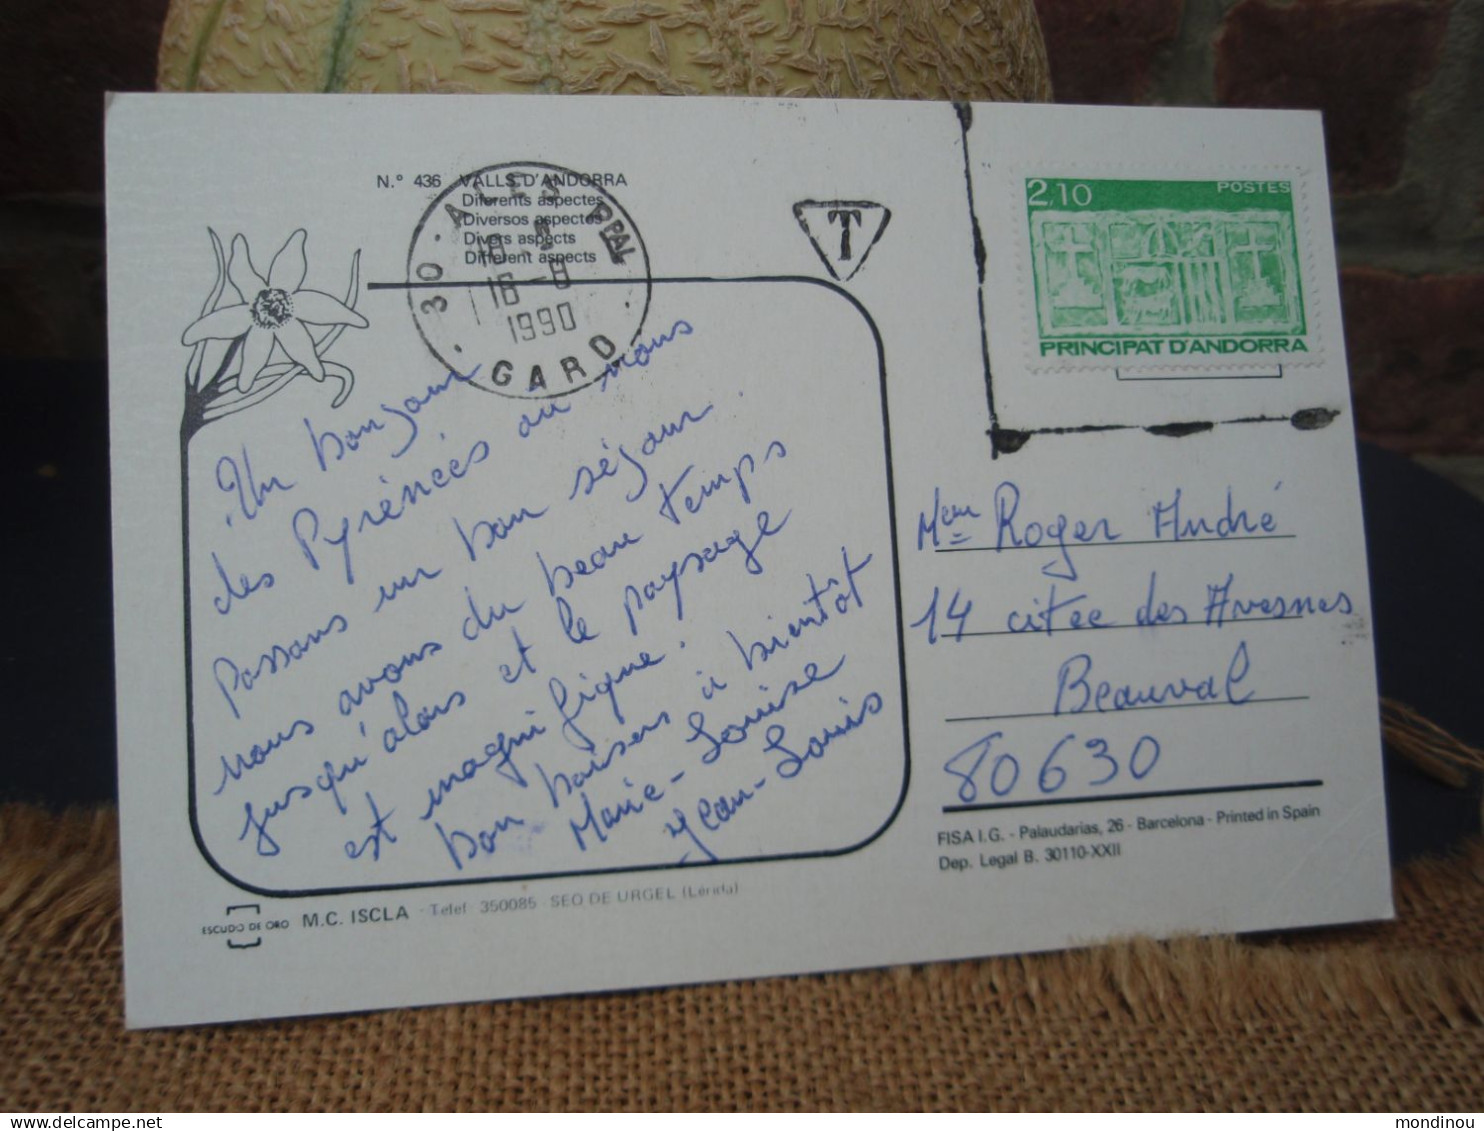 N.° 436 VALLS D'ANDORRA
Diferents aspectes
Diversos aspectos
Divers aspects
Different aspects
30 - ALES PPAL
16-8
1990
GARD
T
2,10 POSTES
PRINCIPAT D'ANDORRA
Un bonjour
des Pyrénées où nous
passons un bon séjour.
nous avons du beau temps
jusqu'alors et le paysage
est magnifique.
bon baisers à bientôt
Marie-Louise
Jean-Louis
Mme Roger André
14 citée des Avesnes
Beauval
80630
FISA I.G. - Palaudarias, 26 - Barcelona - Printed in Spain
Dep. Legal B. 30110-XXII
ESCUDO DE ORO M.C. ISCLA - Telef 350085 - SEO DE URGEL (Lérida)
mondinou